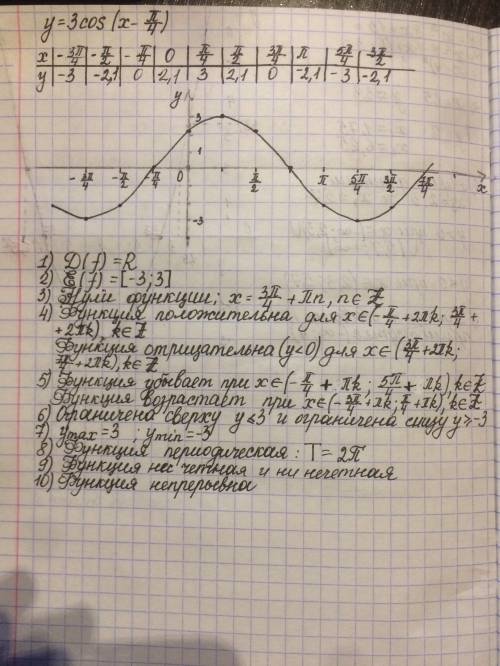 y=3cos(x-π/4)
x | -3π/4 | -π/2 | -π/4 | 0 | π/4 | π/2 | 3π/4 | π | 5π/4 | 3π/2
y | -3 | -2,1 | 0 | 2,1 | 3 | 2,1 | 0 | -2,1 | -3 | -2,1
y
3
1
-3π/4 -π/2 -π/4 0 π/2 π 5π/4 3π/2 7π/4 x
-3
1) D(f)=R
2) E(f)=[-3;3]
3) Нули функции; x=3π/4+πn, n∈Z
4) Функция положительна для x∈(-π/4+2πk; 3π/4+
+2πk), k∈Z
Функция отрицательна (y<0) для x∈(3π/4+2πk;
7π/4+2πk), k∈Z
5) Функция убывает при x∈(-π/4+πk; 5π/4+πk) k∈Z
Функция возрастает при x∈(-3π/4+πk; π/4+πk), k∈Z
6) Ограничена сверху y≤3 и ограничена снизу y≥-3
7) ymax=3 ; ymin=-3
8) Функция периодическая: T=2π
9) Функция четная и ни нечетная
10) Функция непрерывна